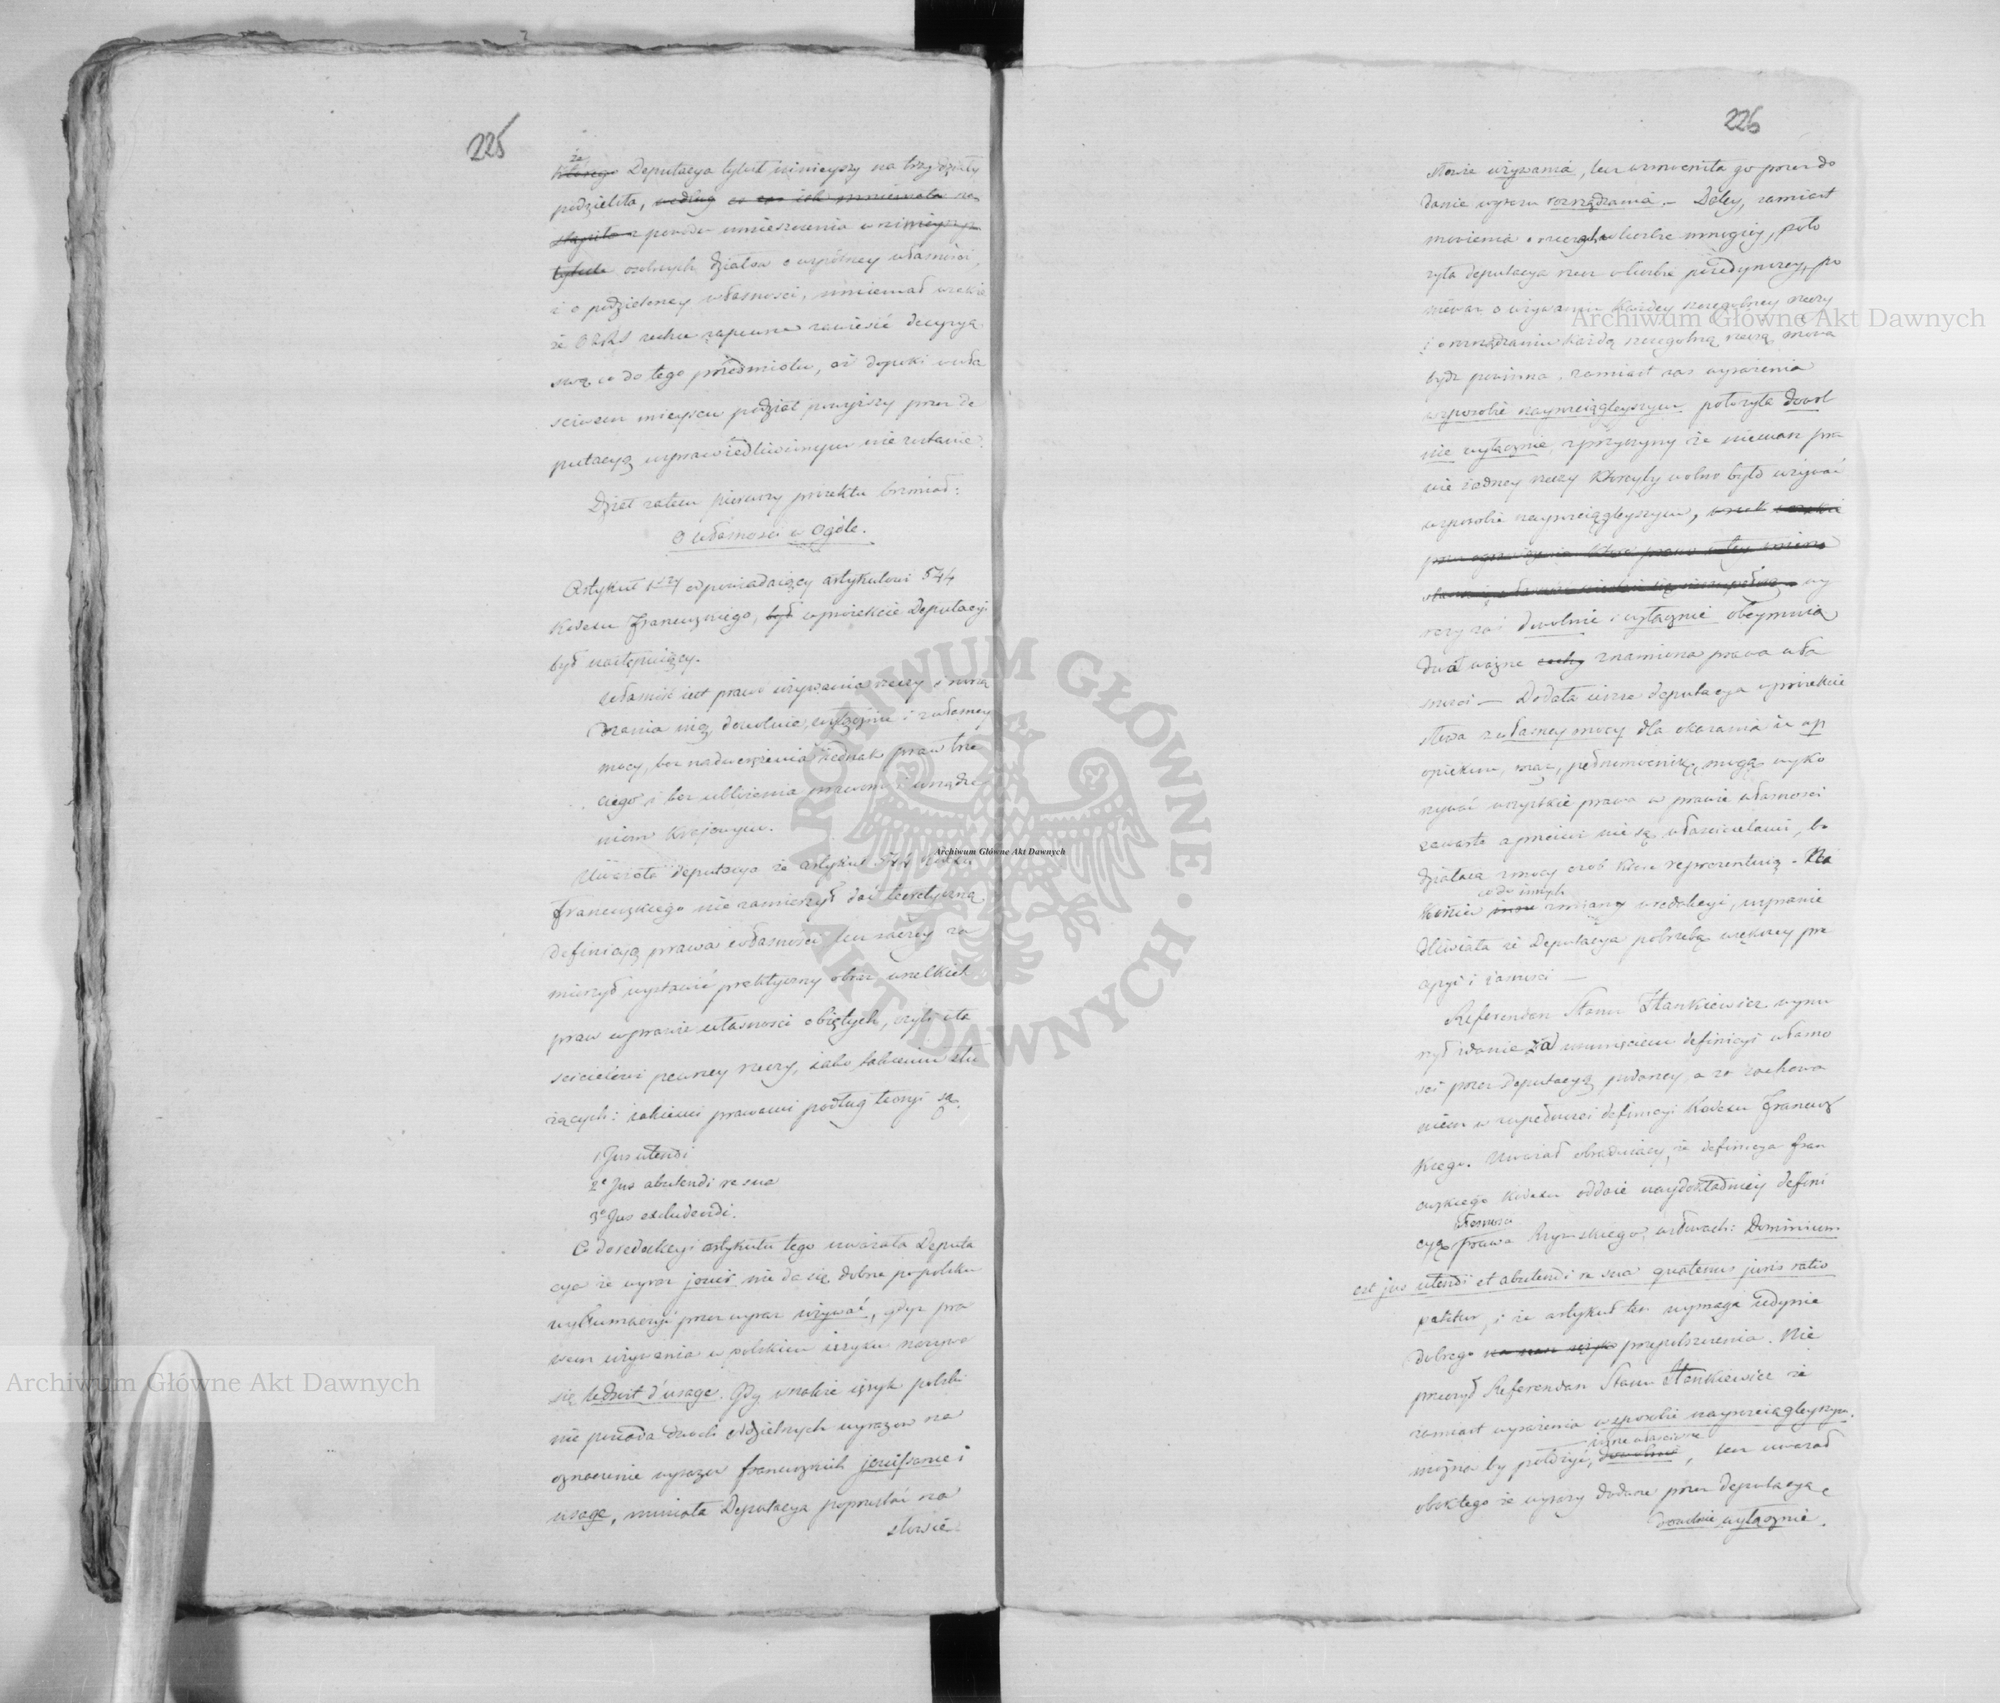 225
że
Którego Deputacya tytuł ninieyszy na trzy działy
podzieliła, według
z powodu umieszczenia w ninieyszym
tytule osobnych działów o wspólney własności,
i o podzieloney własności, mniemał wszakże
że zechce zapewne zawiesić decyzyą
swą co do tego przedmiotu, aż dopóki w wła
ściwem mieyscu podział powyższy przez De
putacyą usprawiedliwionym nie zostanie.
Dział zatem pierwszy projektu brzmiał:
O własności w Ogóle.
Artykuł 1szy odpowiadaiący artykułowi 544
Kodexu Francuzkiego, był w projekcie Deputacyi
był następuiący.
Własność iest prawo używania rzeczy i rozrzą
dzania nią, dowolnie, wyłącznie i z własney
mocy, bez nadwerężenia iednak praw trze
ciego, i bez ubliżenia prawom i urządze
niom Krajowym.
Uważała deputacya że artykuł 544 Kodexu
francuzkiego nie zamierzył dać teoretyczną
definicyą prawa własności lecz raczey za
mierzył wystawić praktyczny obraz wszelkich
praw w prawie własności obiętych, czyli wła
ścicielowi pewney rzeczy, iako takiemu słu
żących: takiemi prawami podług teoryi są.
1. Jus utendi
2o Jus abutendi re sua
3o Jus excludendi.
Co do redakcyi artykułu tego uważała Deputa
cya że wyraz jouir nie da się dobrze po polsku
wytłumaczyć przez wyraz używać, gdyż pra
wem używania w polskim ięzyku nazywa
się le droit d'usage. Gdy wszakże ięzyk polski
nie posiada dwóch oddzielnych wyrazów na
oznaczenie wyrazów francuzkich jouissance i
usage, musiała Deputacya poprzestać na
słowie
226
słowie używania, lecz wzmocniła go przez do
danie wyrazu rozrządzania. — Daley, zamiast
mówienia o rzeczach w liczbie mnogiey, poło
żyła deputacya rzecz w liczbie poiedynczey, po
nieważ o używaniu każdey szczególney rzeczy
i o rozrządzaniu każdą szczególną rzeczą mowa
bydź powinna. zamiast zaś wyrażenia
w sposobie nayrozciągleyszym położyła dowol
nie wyłącznie, z przyczyny że niemasz pra
wie żadney rzeczy którąby wolno było używać
w sposobie nayrozciągleyszym,
wy
razy zaś dowolnie i wyłącznie obeymuią
dwa ważne cechy znamiona prawa wła
sności — Dodała iescze deputacya w projekcie
słowa z własney mocy dla okazania że np
opiekun, mąż, pełnomocnik, mogą wyko
nywać wszystkie prawa w prawie własności
zawarte a przecież nie są właścicielami, bo
działaią z mocy osób które reprezentuią. Na
co do innych
koniec inne zmiany w redakcyi, usprawie
dliwiała ie Deputacya potrzebą większey pre
cyzyi i iasności —
Referendarz Stanu Hankiewicz wynu
rzył zdanie za usunięciem definicyi własno
ści przez deputacyą podaney, a za zachowa
niem w zupełności definicyi Kodexu Francuz
kiego. Uważał obraduiący, że definicya fran
cuzkiego Kodexu oddaie naydokładniey defini
własności
cyą prawa Rzymskiego, w słowach: Dominium
est jus utendi et abutendi re sua quatenus juris ratio
patitur, i że artykuł ten wymaga iedynie
dobrego na nasz ięzyk przepolszczenia. Nie
przeczył Referendarz Stanu Hankiewicz że
zamiast wyrażenia w sposobie nayrozciągleyszym.
można by położyć, dowolnie, lecz uważał
obok tego że wyrazy dodane przez deputacyą
dowolnie wyłącznie.
Archiwum Główne Akt Dawnych
Archiwum Główne Akt Dawnych
Archiwum Główne Akt Dawnych
ARCHIWUM GŁÓWNE AKT DAWNYCH